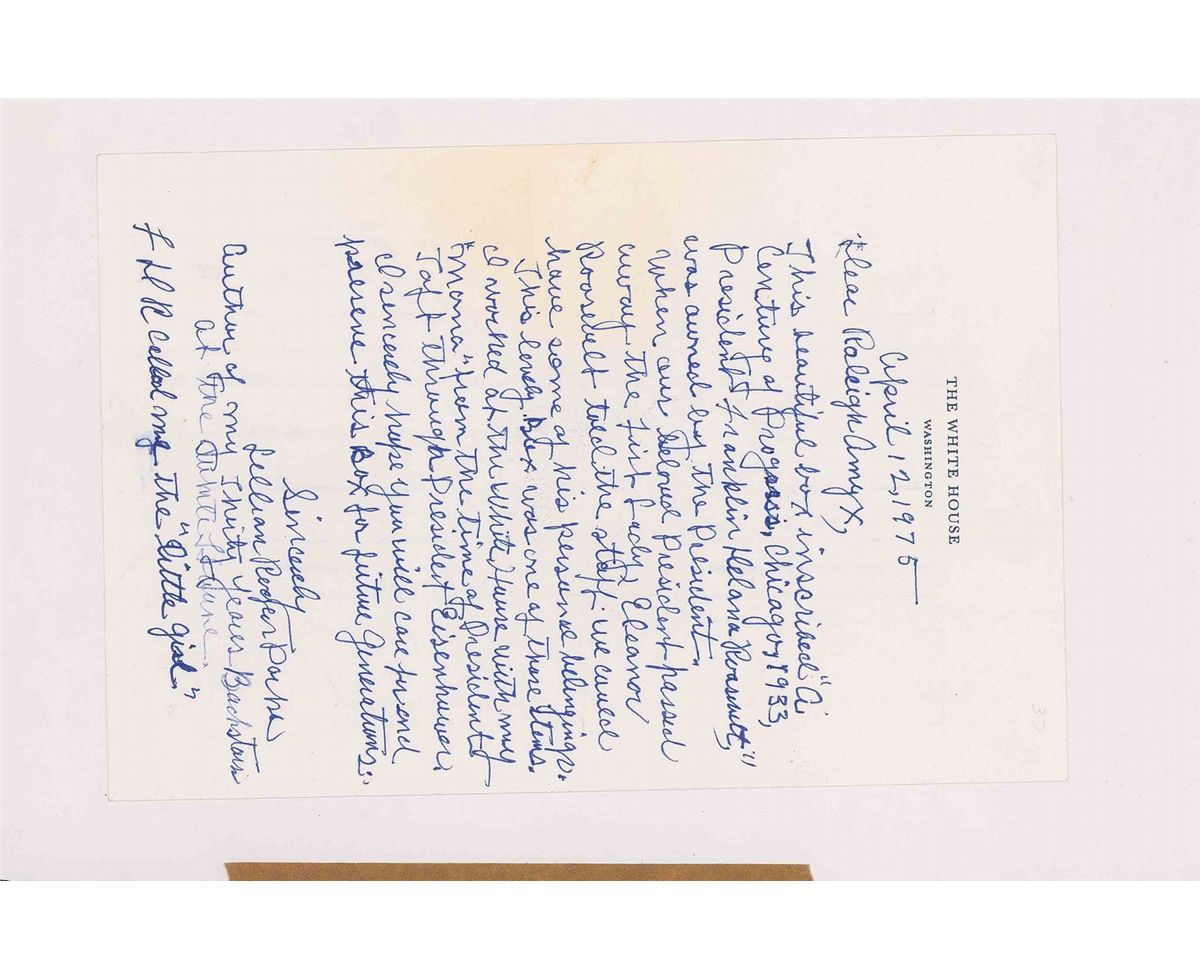 THE WHITE HOUSE
WASHINGTON
April 12, 1975
Dear Raleigh Amyx,
This beautiful box inscribed "A
Century of Progress, Chicago, 1933,
President Franklin Delano Roosevelt,"
was owned by the President.
When our Beloved President passed
away the First Lady, Eleanor
Roosevelt told the staff we could
have some of his personal belongings.
This lovely Box was one of those items.
I worked at the White House with my
"Mama" from the time of President
Taft through President Eisenhower.
I sincerely hope you will care for and
preserve this Box for future Generations.
Sincerely
Lillian Rogers Parks
Author of my Thirty Years Backstairs
at the White House.
FDR called me the "little girl"
37